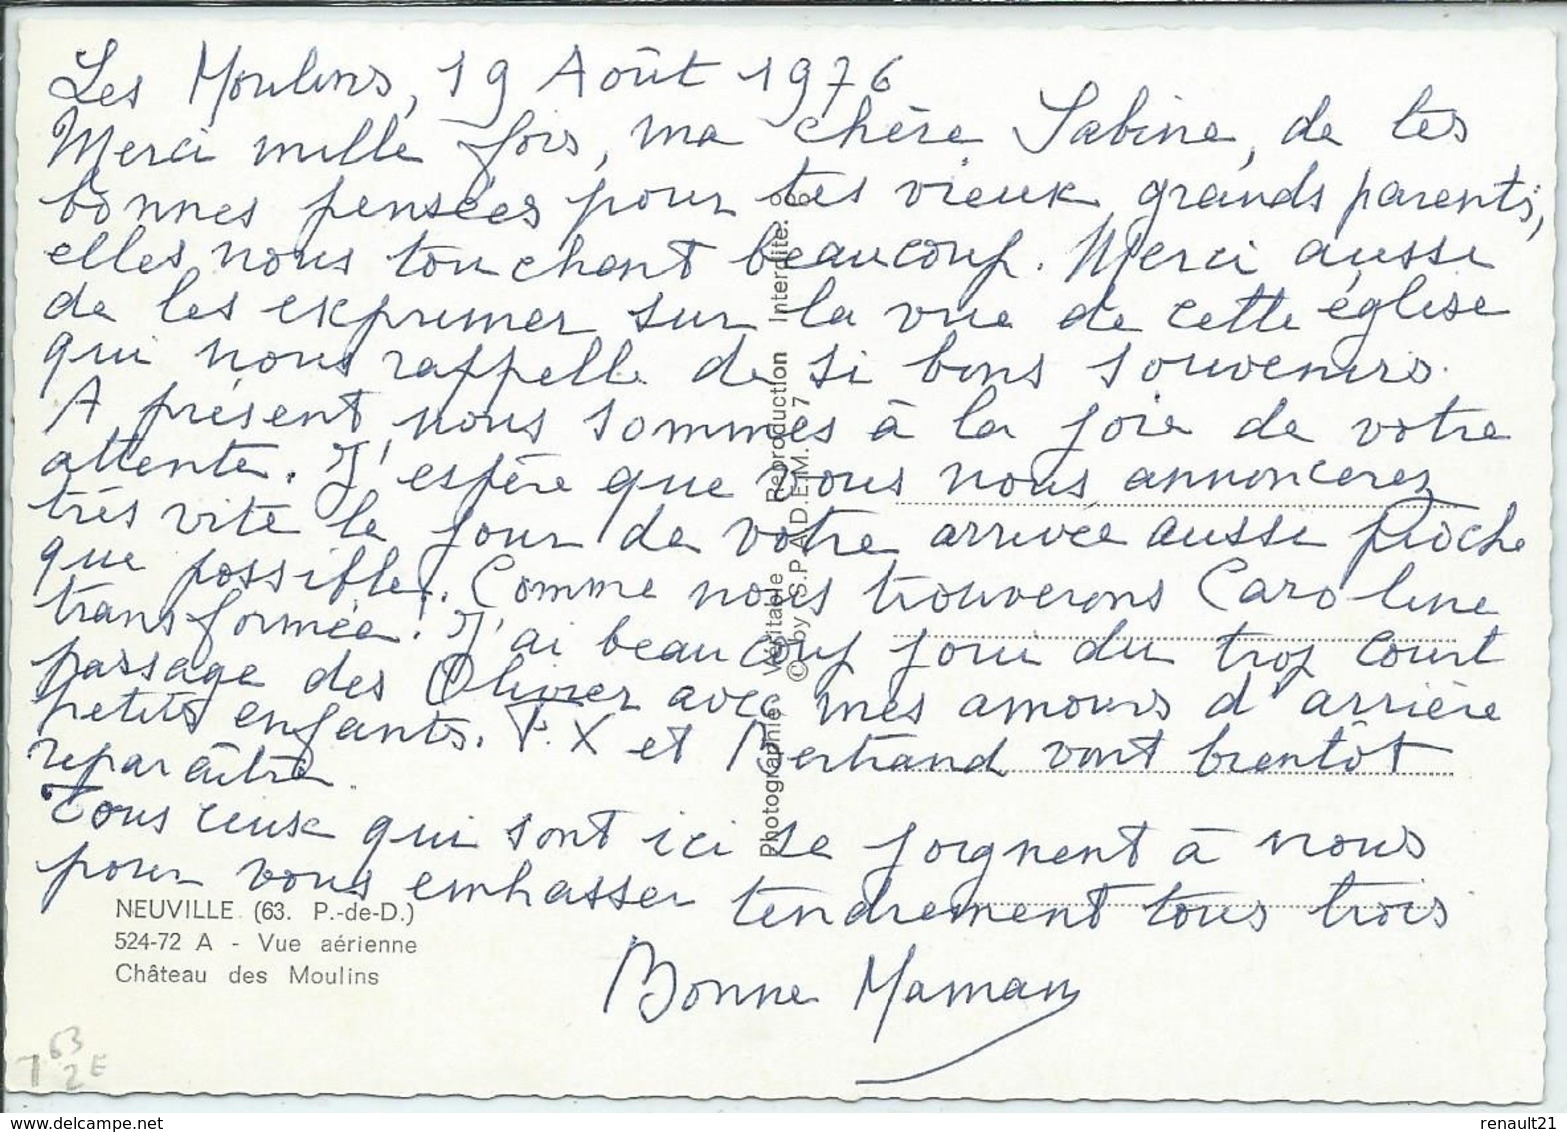 Les Moulins, 19 Août 1976
Merci mille fois, ma chère Sabine, de tes
bonnes pensées pour tes vieux grands parents,
elles nous touchent beaucoup. Merci aussi
de les exprimer sur la vue de cette église
qui nous rappelle de si bons souvenirs.
A présent nous sommes à la joie de votre
attente. J'espère que vous nous annoncerez
très vite le jour de votre arrivée aussi proche
que possible. Comme nous trouverons Caroline
transformée! J'ai beaucoup joui du trop court
passage des Olivier avec mes amours d'arrière
petits enfants. F.X et Bertrand vont bientôt
reparaître.
Tous ceux qui sont ici se joignent à nous
pour vous embrasser tendrement tous trois
Bonne Maman
NEUVILLE (63. P.-de-D.)
524-72 A - Vue aérienne
Château des Moulins
Photographie Véritable Reproduction Interdite.
© by S.P.A.D.E.M.
63
2E
renault21